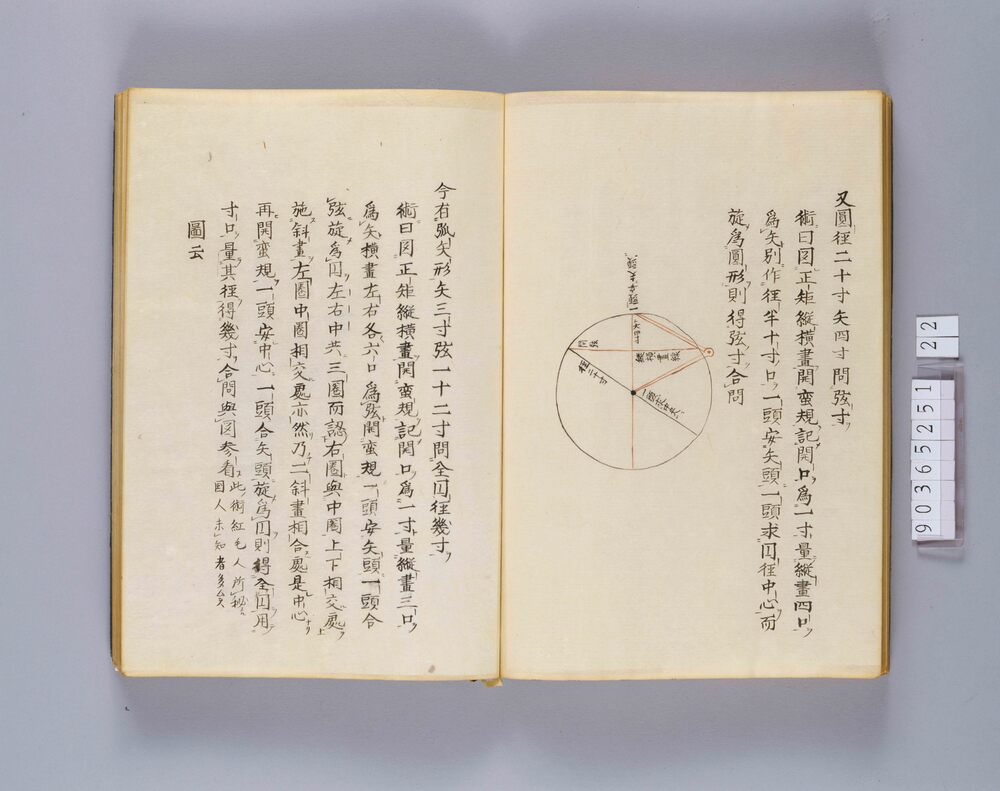 又圓徑二十寸矢四寸問弦寸
術曰図正矩縦横畫開蛮規記開口為一寸量縦畫四口
為矢別作徑半十寸口一頭安矢頭一頭求囗徑中心而
旋為圓形則得弦寸合問
矢四寸
問弦
縦横畫
徑二十寸
今有弧矢形矢三寸弦一十二寸問全囗徑幾寸
術曰図正矩縦横畫開蛮規記開口為一寸量縦畫三口
為矢横畫左右各六口為弦開蛮規一頭安矢頭一頭合
弦旋為囗左右中共三圏而認右圏與中圏上下相交處
施斜畫左圏中圏相交處亦然乃二斜畫相合處是中心
再開蛮規一頭安中心一頭合矢頭旋為囗則得全囗用
寸口量其徑得幾寸合問與図参看
此術紅毛人所秘
國人未知者多矣
圖云
22
90365251